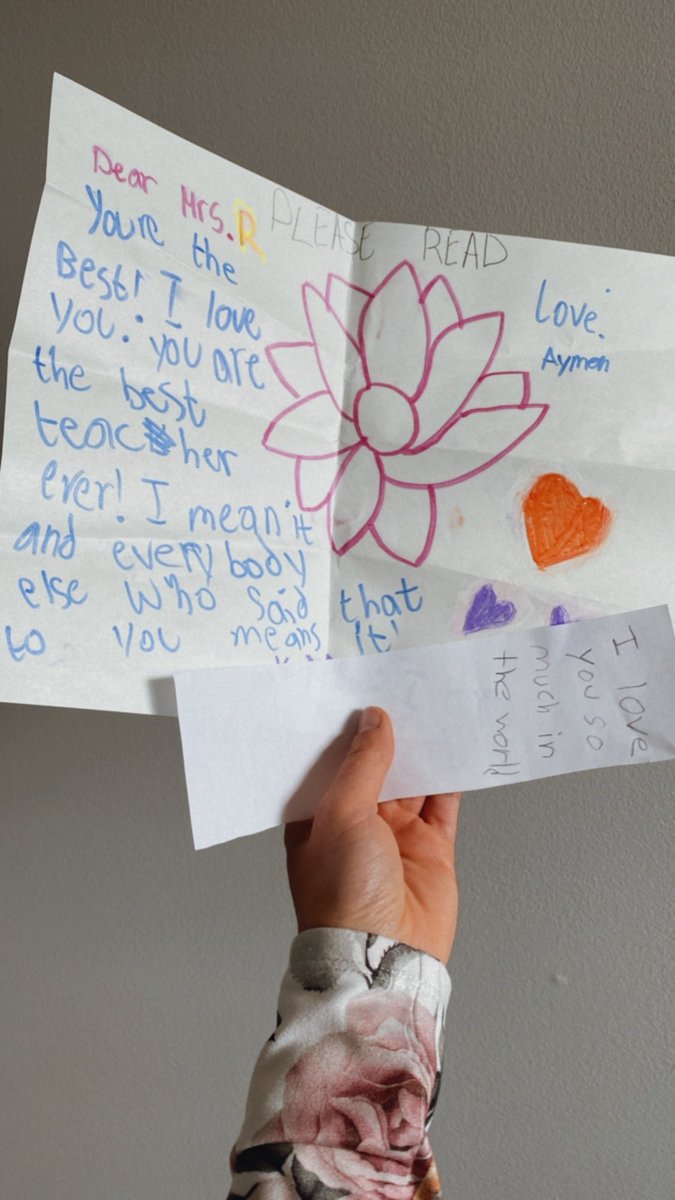 Dear Mrs. R
PLEASE READ
Youre the
Best! I love
you. you are
the best
teacher
ever! I mean it
and everybody
else who said that
to you means it!
Love.
Aymen
I love
you so
much in
the world